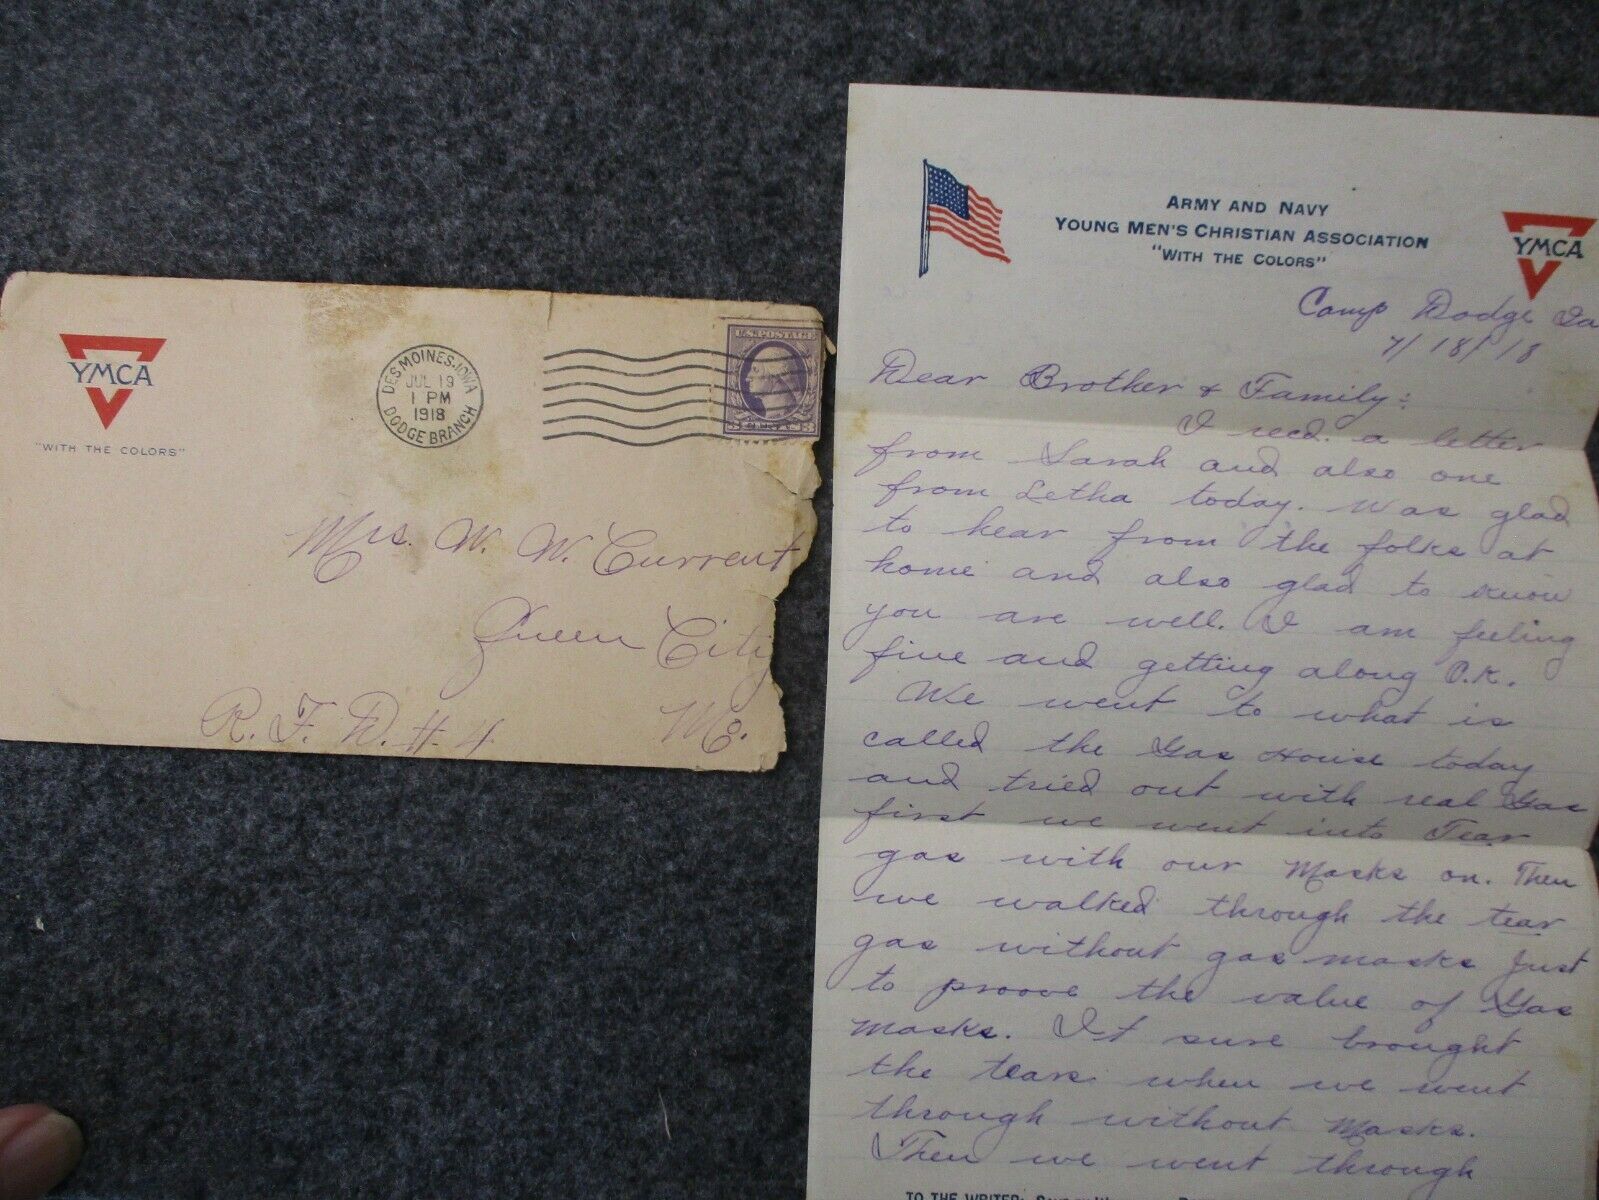 YMCA
"WITH THE COLORS"
DES MOINES, IOWA
JUL 19
1 PM
1918
DODGE BRANCH
U.S. POSTAGE
3 CENTS 3
Mrs. W. W. Current
Queen City
R. F. D. # 4 Mo.
ARMY AND NAVY
YOUNG MEN'S CHRISTIAN ASSOCIATION
"WITH THE COLORS"
YMCA
Camp Dodge Ia
7/18/18
Dear Brother & Family:
I recd. a letter
from Sarah and also one
from Letha today. Was glad
to hear from the folks at
home and also glad to know
you are well. I am feeling
fine and getting along O.K.
We went to what is
called the Gas House today
and tried out with real Gas
first we went into Tear
gas with our Masks on. Then
we walked through the tear
gas without gas masks Just
to proove the value of Gas
Masks. It sure brought
the tears when we went
through without Masks.
Then we went through
TO THE WRITER: